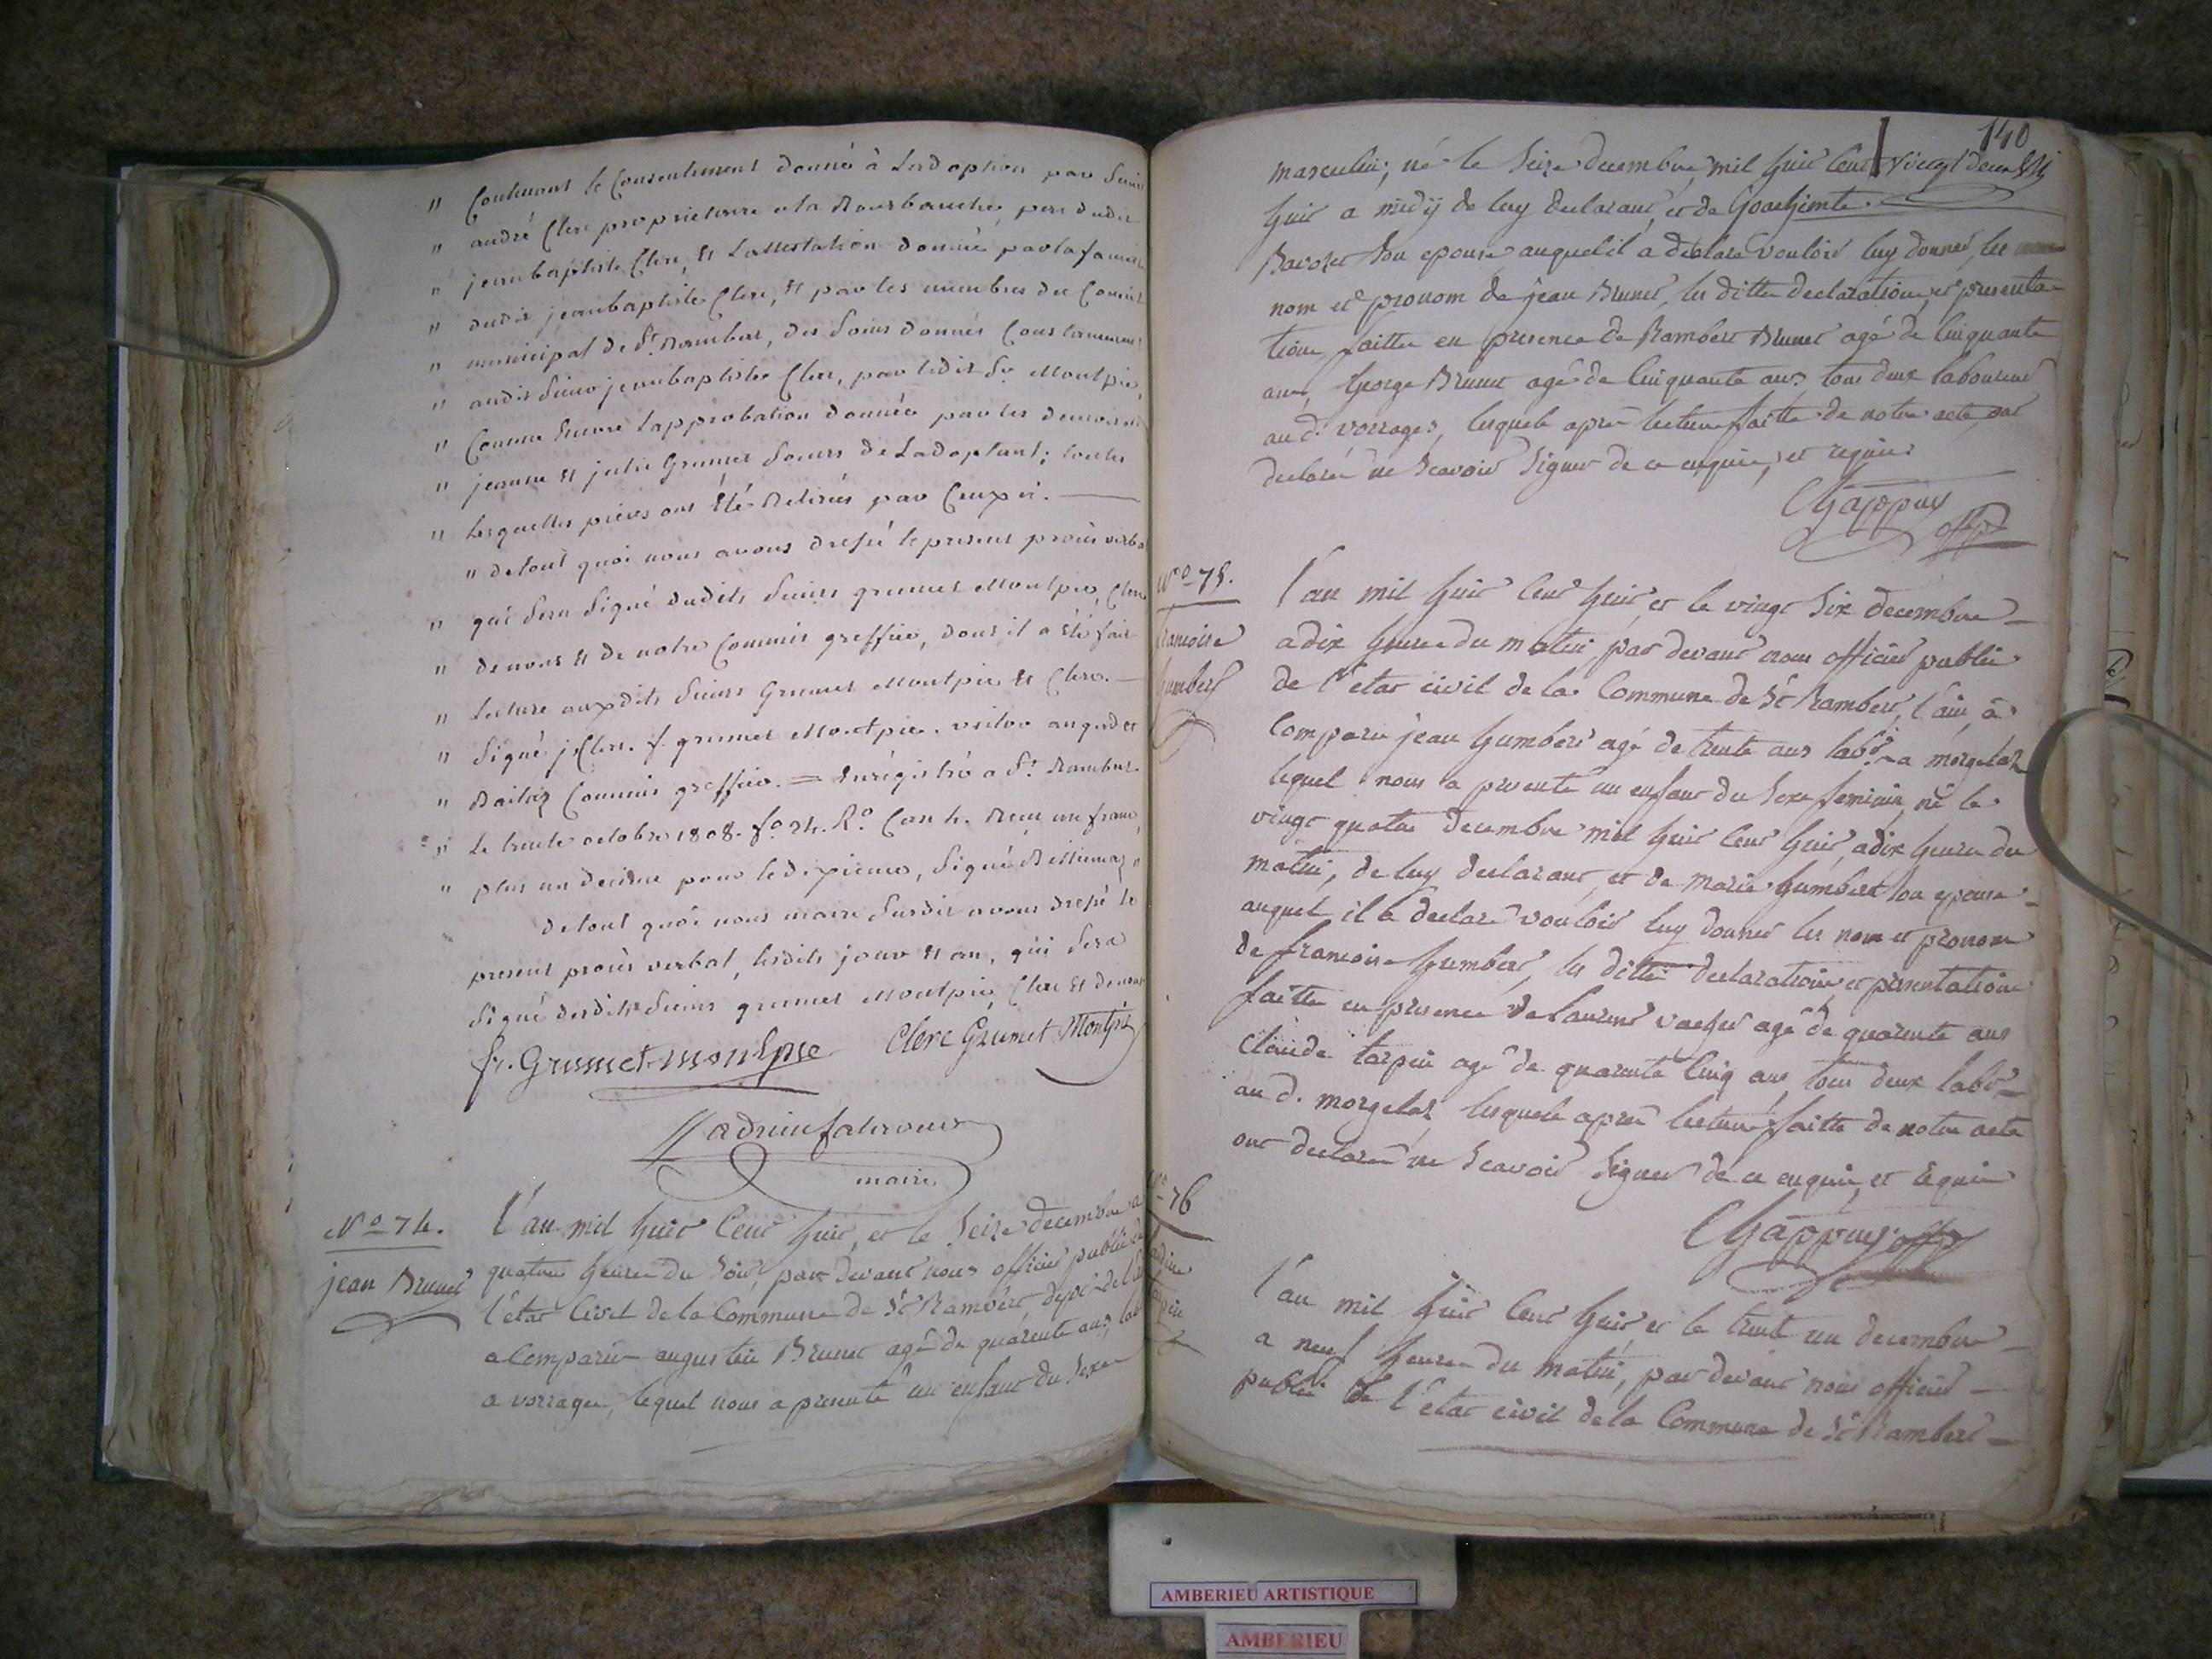 " Contenant le Consentement donné à Ladoption par Sieur
" andré Clerc proprietaire a la pere dudit
" jeanbaptiste Clerc, et Lattestation donnée par la famille
" dudit jeanbaptiste Clerc, et par les membres du Conseil
" municipal de St. Rambert, des Soins donnés Constamment
" audit Sieur jeanbaptiste Clerc, par ledit Sr. Montpié,
" Comme Encore l'approbation donnée par les demoiselles
" jeanne et julie Grumet Soeurs de Ladoptant; toutes
" lesquelles pièces ont Eté Retirées par Ceux ci.
" de tout quoi nous avons dressé le present procès verbal
" qui Sera Signé dudits Sieurs grumet Montpié, Clerc
" de nous et de notre Commis greffier, dont il a Eté fait
" Lecture auxdits Sieurs Grumet Montpié et Clerc.
" Signé j. Clerc. f. grumet Montpié.
" Commis greffier. = Enrégistré a St. Rambert
" Le trente octobre 1808. fo. 24. Ro. Case 4. Reçu un franc,
" plus un decime pour le dixieme, Signé "
de tout quoi nous maire Susdit avons dressé le
present procès verbal, lesdits jour et an, qui Sera
Signé desdits Sieurs grumet Montpié, Clerc et de nous
fr. Grumet-montpie Clerc Grumet Montpié
maire
No 74.
jean Brunet
L'an mil huit Cent huit, et le Seize decembre a
quatre heures du Soir, par devant nous officier public de
l'état Civil de la Commune de St Rambert, dept. de l'ain
a Comparu augustin Brunet agé de quarente ans, lab
a vorrages, lequel nous a presenté un enfant du Sexe
140
masculin, né le Seize decembre mil huit Cent
huit a midÿ de luy declarant, et de
Son epouse auquel il a declaré vouloir luy donner, les
nom et pronom de jean Brunet, les dittes declarations et presenta
tions faittes en presence de Rambert Brunet agé de Cinquante
ans, George Brunet agé de Cinquante ans tous deux laboureurs
au d. vorrages, lesquels après lecture faitte de notre acte ont
declarés ne Scavoir Signer de ce enquis, et requis
Chappuy offp
No 75.
francoise
humbert
l'an mil huit Cent huit, et le vingt Six decembre
a dix heures du matin par devant nous officier public
de l'état civil de la Commune de St Rambert, l'ain, a
Comparu jean humbert agé de trente ans labr. a morgelas
lequel nous a presenté un enfant du Sexe feminin, né le
vingt quatre decembre mil huit Cent huit, a dix heures du
matin, de luy declarant, et de marie humbert Son epouse
auquel il a declaré vouloir luy donner les nom et pronom
de francoise humbert, les dittes declarations et presentations
faittes en presence de laurent vacher agé de quarente ans
Claude tarpin agé de quarente Cinq ans tous deux labr.
au d. morgelas, lesquels après lecture faitte de notre acte
ont declarés ne Scavoir Signer de ce enquis, et requis
Chappuy offp
No 76
l'an mil huit Cent huit, et le trente un decembre
a neuf heures du matin, par devant nous officier
public de l'état civil de la Commune de St Rambert
AMBERIEU ARTISTIQUE
AMBERIEU